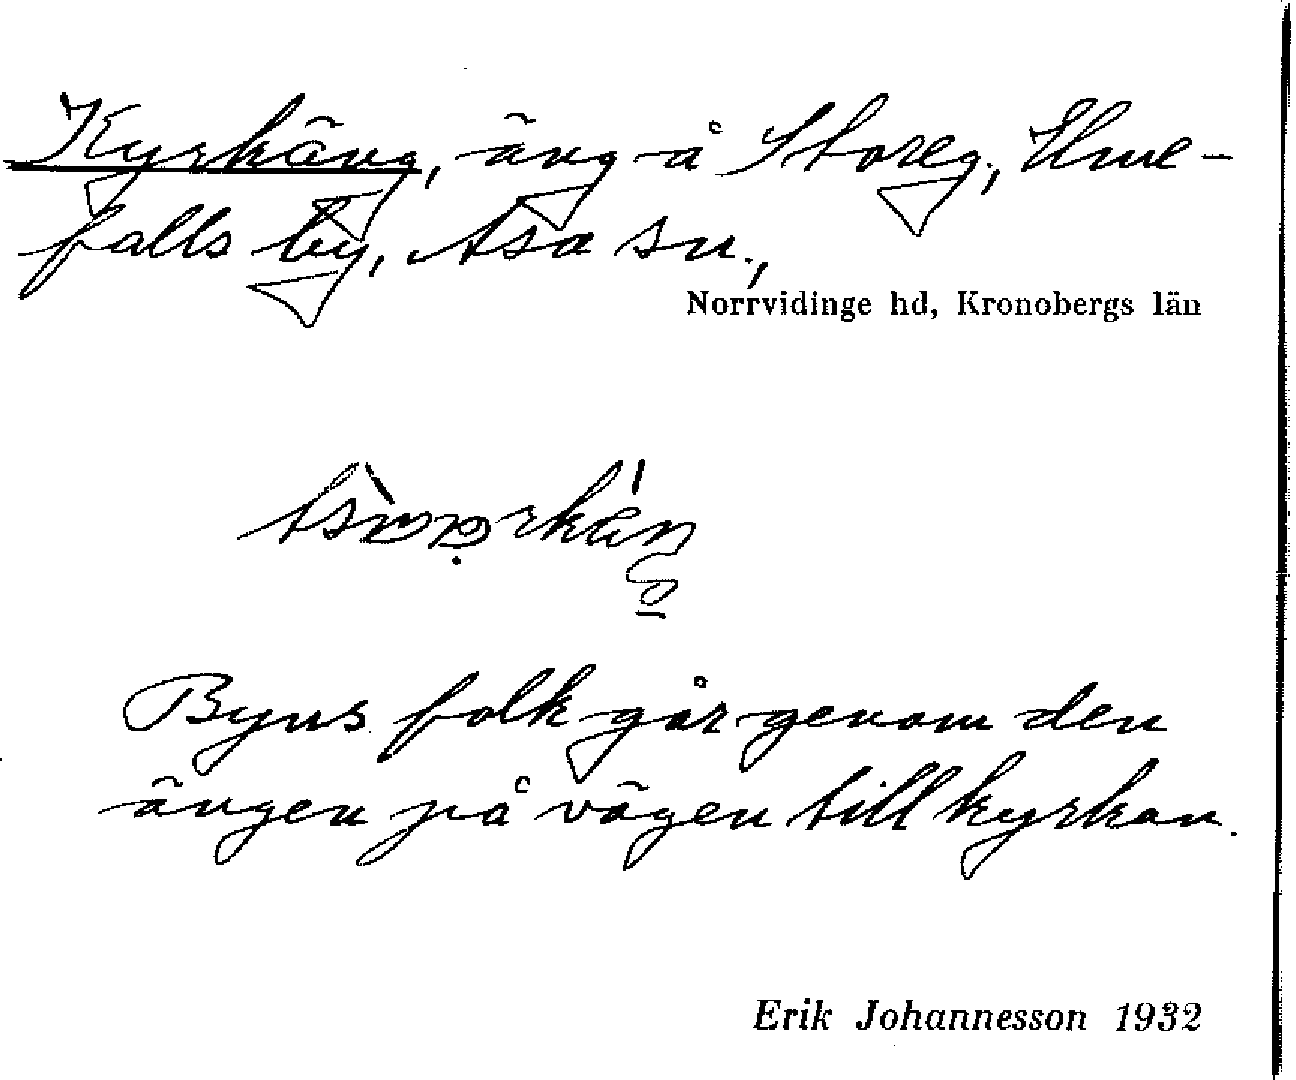 Kyrkäng, äng å Storeg., Hme-
falls by, Asa sn.,
Norrvidinge hd, Kronobergs län
Byns folk går genom den
ängen på vägen till kyrkan.
Erik Johannesson 1932